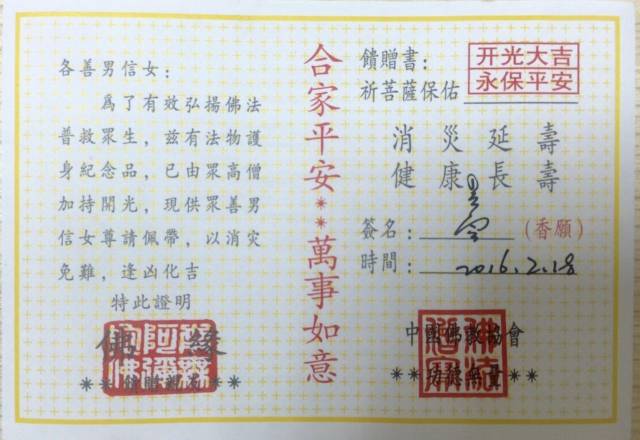 各善男信女：
爲了有效弘揚佛法
普救眾生，兹有法物護
身紀念品，已由眾高僧
加持開光，現供眾善男
信女尊請佩帶，以消灾
免難，逢凶化吉
特此證明
佛 緣
合家平安**萬事如意
饋贈書：
祈菩薩保佑
开光大吉
永保平安
消災延壽
健康長壽
簽名：
（香願）
時間：2016.2.18
中國佛教協會
**功德無量**